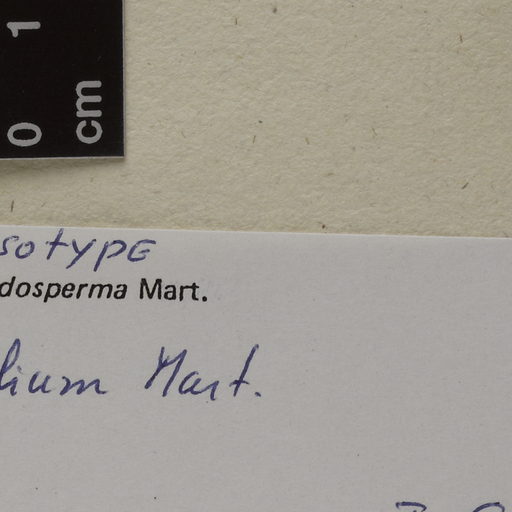 0 1
cm
sotype
dosperma Mart.
lium Mart.